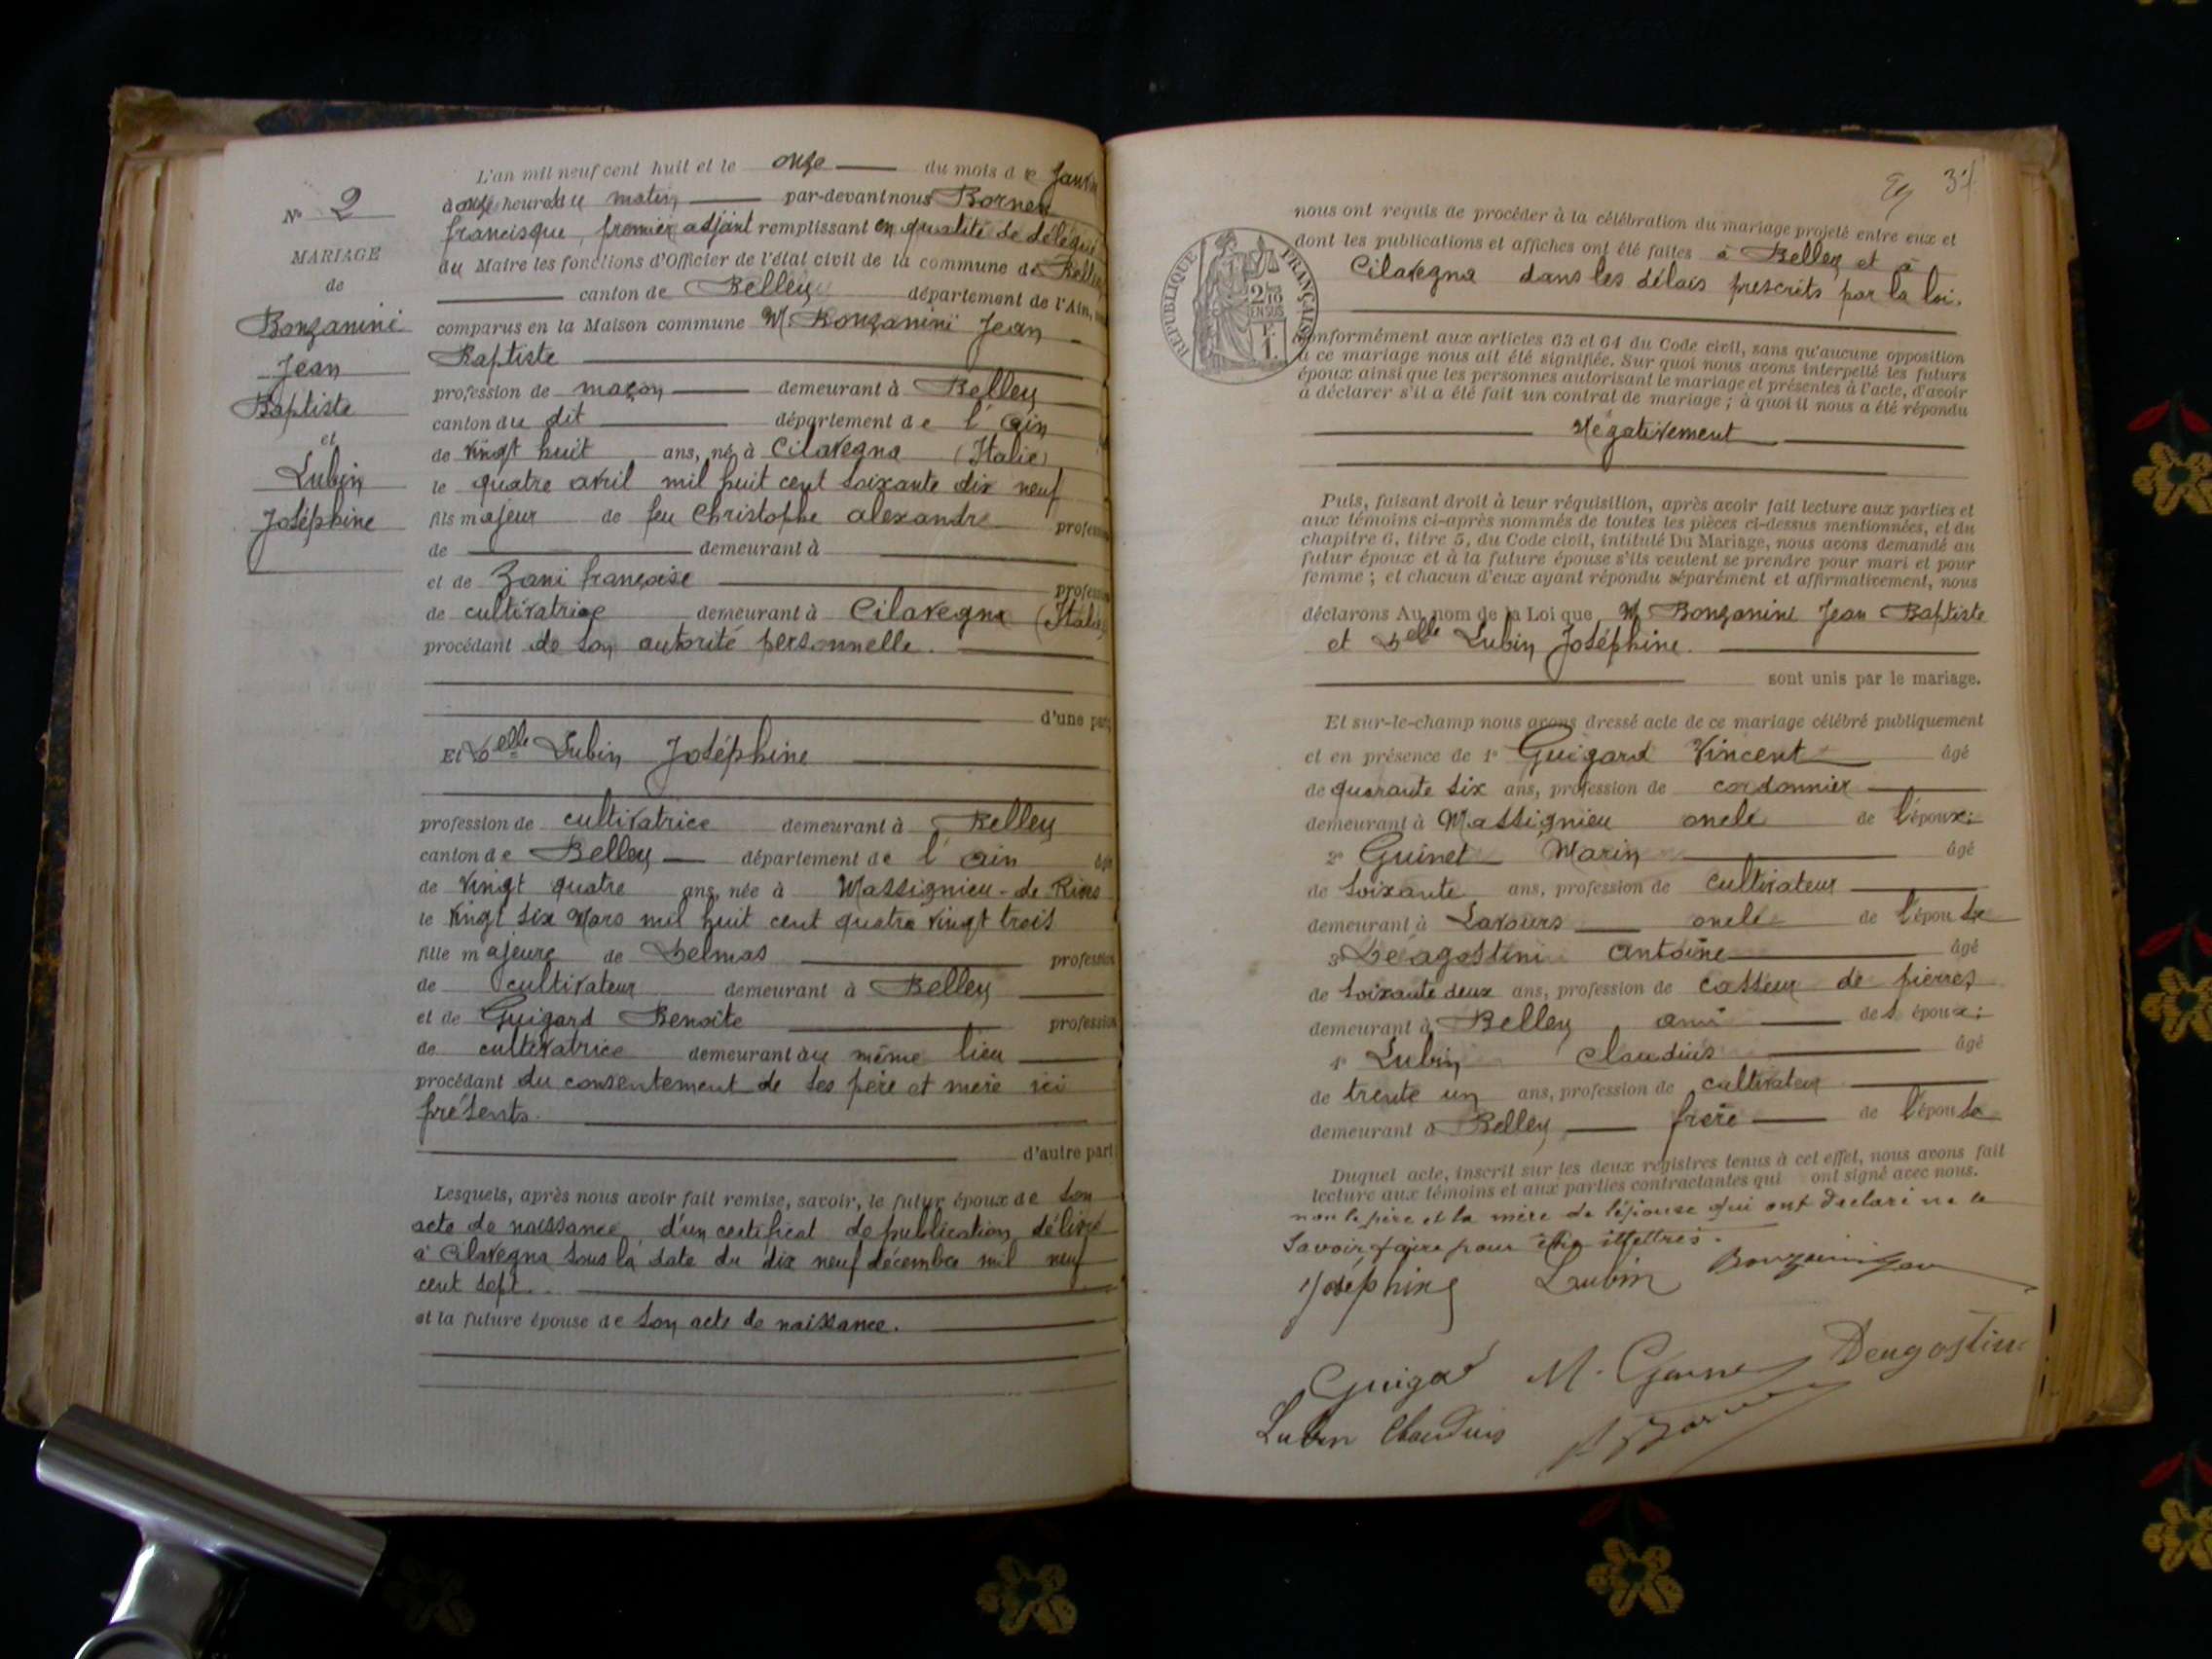 N° 2
MARIAGE
de
Bonzanini
Jean
Baptiste
et
Lubin
Joséphine
L'an mil neuf cent huit et le onze du mois de Janvier
à onze heures du matin par-devant nous Bornex
francisque, premier adjoint remplissant en qualité de délégué
du Maire les fonctions d'Officier de l'état civil de la commune de Belley
canton de Belley département de l'Ain,
comparus en la Maison commune M. Bonzanini Jean
Baptiste
profession de maçon demeurant à Belley
canton du dit département de l'ain
de vingt huit ans, né à Cilavegna (Italie)
le quatre avril mil huit cent soixante dix neuf
fils majeur de feu Christophe alexandre profession
de demeurant à
et de Zani françoise profession
de cultivatrice demeurant à Cilavegna (Italie)
procédant de son autorité personnelle.
d'une part,
Et Delle Lubin Joséphine
profession de cultivatrice demeurant à Belley
canton de Belley département de l'ain âgée
de vingt quatre ans, née à Massignieu-de Rives
le vingt six Mars mil huit cent quatre vingt trois
fille majeure de Delmas profession
de cultivateur demeurant à Belley
et de Guigard Benoite profession
de cultivatrice demeurant au même lieu
procédant du consentement de ses père et mère ici
présents.
d'autre part.
Lesquels, après nous avoir fait remise, savoir, le futur époux de son
acte de naissance, d'un certificat de publication délivré
à Cilavegna sous la date du dix neuf décembre mil neuf
cent sept.
et la future épouse de son acte de naissance.
31
nous ont requis de procéder à la célébration du mariage projeté entre eux et
dont les publications et affiches ont été faites à Belley et à
Cilavegna dans les délais prescrits par la loi.
RÉPUBLIQUE FRANÇAISE
2/10 EN SUS
F.
1.
conformément aux articles 63 et 64 du Code civil, sans qu'aucune opposition
à ce mariage nous ait été signifiée. Sur quoi nous avons interpellé les futurs
époux ainsi que les personnes autorisant le mariage et présentes à l'acte, d'avoir
à déclarer s'il a été fait un contrat de mariage ; à quoi il nous a été répondu
Négativement
Puis, faisant droit à leur réquisition, après avoir fait lecture aux parties et
aux témoins ci-après nommés de toutes les pièces ci-dessus mentionnées, et du
chapitre 6, titre 5, du Code civil, intitulé Du Mariage, nous avons demandé au
futur époux et à la future épouse s'ils veulent se prendre pour mari et pour
femme ; et chacun d'eux ayant répondu séparément et affirmativement, nous
déclarons Au nom de la Loi que M Bonzanini Jean Baptiste
et Delle Lubin Joséphine.
sont unis par le mariage.
Et sur-le-champ nous avons dressé acte de ce mariage célébré publiquement
et en présence de 1° Guigard Vincent âgé
de quarante six ans, profession de cordonnier
demeurant à Massignieu oncle de l'époux;
2° Guinet Marin âgé
de soixante ans, profession de cultivateur
demeurant à Lavours oncle de l'épouse
3° Deagostini Antoine âgé
de soixante deux ans, profession de casseur de pierres
demeurant à Belley ami des époux;
4° Lubin Claudius âgé
de trente un ans, profession de cultivateur
demeurant à Belley frère de l'épouse
Duquel acte, inscrit sur les deux registres tenus à cet effet, nous avons fait
lecture aux témoins et aux parties contractantes qui ont signé avec nous.
non le père et la mère de l'épouse qui ont déclaré ne le
savoir faire pour être illettrés.
Joséphine Lubin Bonzanini Jean
Guigad Deagostini
Lubin Claudius